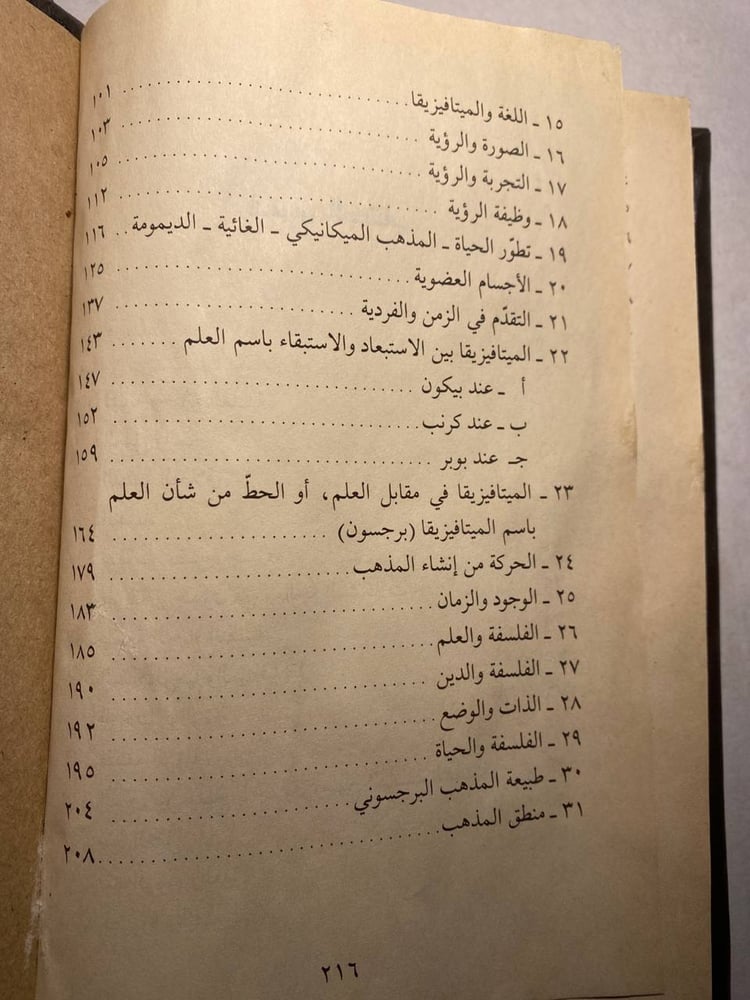 ١٥ ـ اللغة والميتافيزيقا ........................ ١٠١
١٦ ـ الصورة والرؤية ........................ ١٠٣
١٧ ـ التجربة والرؤية ........................ ١٠٥
١٨ ـ وظيفة الرؤية ........................ ١١٢
١٩ ـ تطوّر الحياة ـ المذهب الميكانيكي ـ الغائية ـ الديمومة .. ١١٦
٢٠ ـ الأجسام العضوية ........................ ١٢٥
٢١ ـ التقدّم في الزمن والفردية ........................ ١٣٧
٢٢ ـ الميتافيزيقا بين الاستبعاد والاستبقاء باسم العلم ....... ١٤٣
أ ـ عند بيكون ........................ ١٤٧
ب ـ عند كرنب ........................ ١٥٢
جـ عند بوبر ........................ ١٥٩
٢٣ ـ الميتافيزيقا في مقابل العلم، أو الحطّ من شأن العلم
باسم الميتافيزيقا (برجسون) ........................ ١٦٤
٢٤ ـ الحركة من إنشاء المذهب ........................ ١٧٩
٢٥ ـ الوجود والزمان ........................ ١٨٣
٢٦ ـ الفلسفة والعلم ........................ ١٨٥
٢٧ ـ الفلسفة والدين ........................ ١٩٠
٢٨ ـ الذات والوضع ........................ ١٩٢
٢٩ ـ الفلسفة والحياة ........................ ١٩٥
٣٠ ـ طبيعة المذهب البرجسوني ........................ ٢٠٤
٣١ ـ منطق المذهب ........................ ٢٠٨
٢١٦